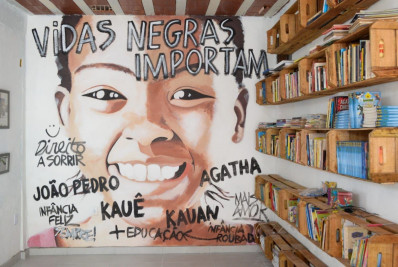 VIDAS NEGRAS
IMPORTAM
Direito
A SORRIR
JOÃO PEDRO
AGATHA
INFÂNCIA
FELIZ
KAUÊ
KAUAN
MAIS
+ EDUCAÇÃO
INFÂNCIA
ROUBADA